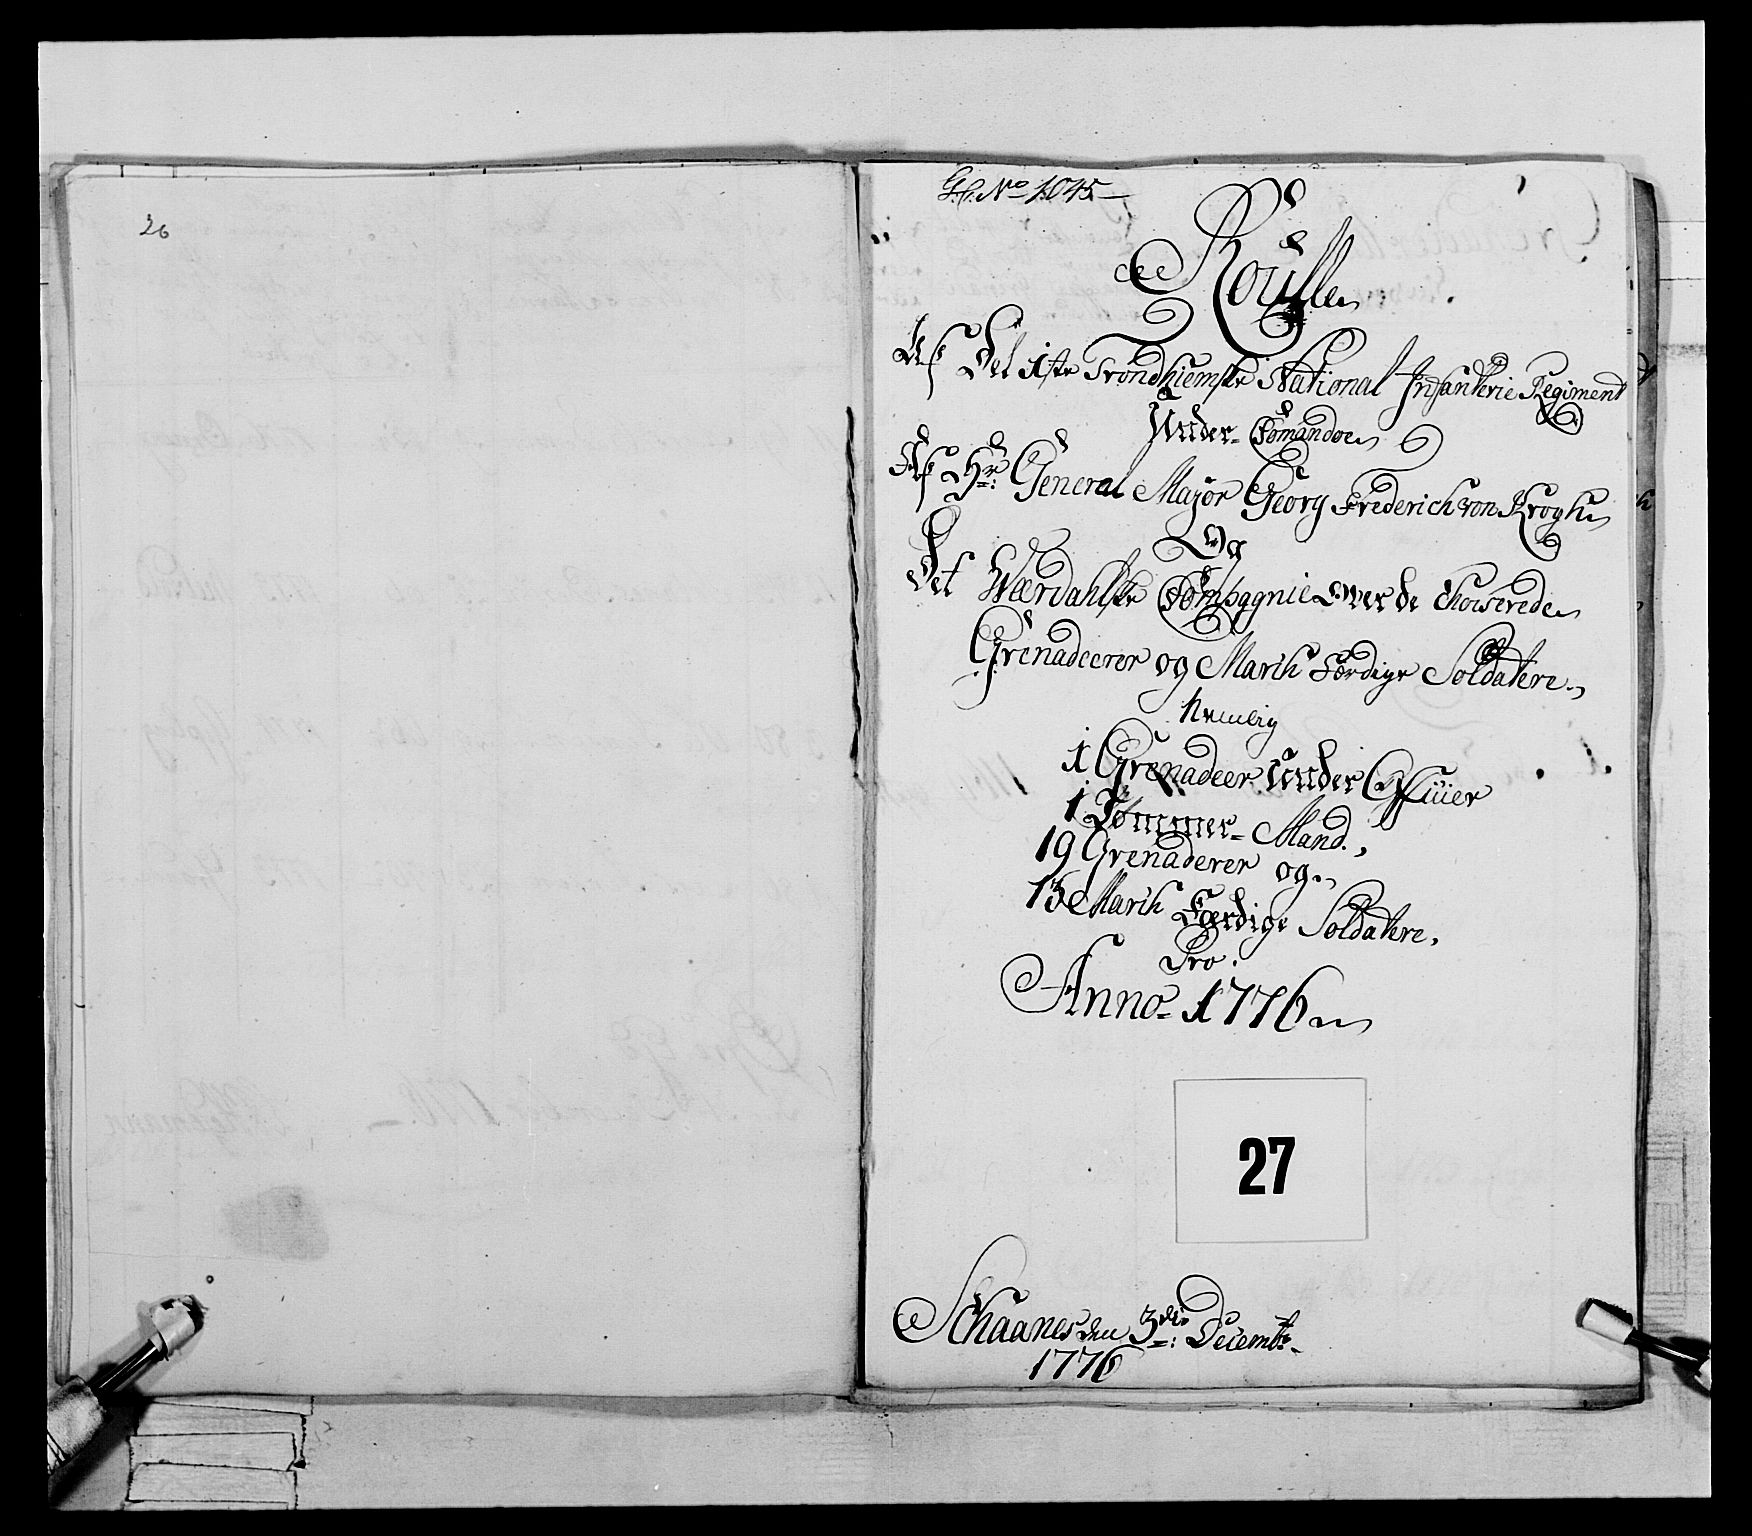 26
G.C. No 1045
Roulle
Af Det 1ste Trondhiemske National Infanterie Regiment
Under Comando
Af Hr: General Major Georg Frederich von Krogh
Og
Det Wærdahlske Compagnie over de Choiserede
Grenadeerer og Marsh Færdige Soldatere
Nemlig
1 Grenadeer Under Officier
1 Tømmer-Mand.
19 Grenaderer og
13 Marsh Færdige Soldatere.
Pro.
Anno 1776
27
Schaanes den 3die: Decembr.
1776